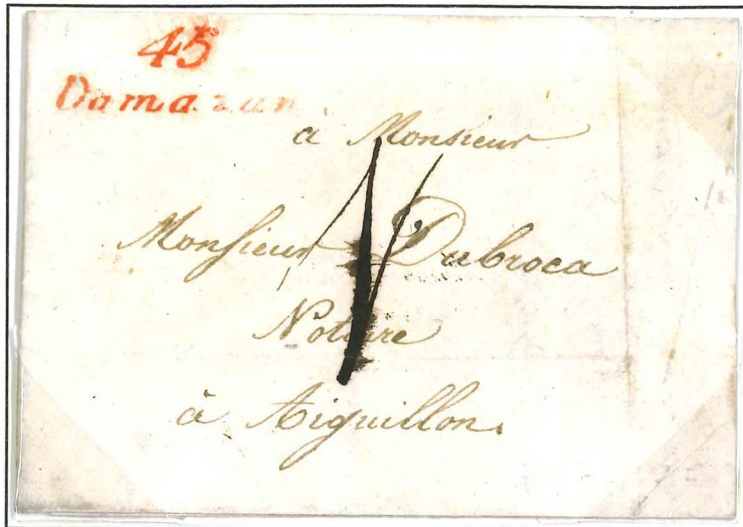 45
Damazan
à Monsieur
Monsieur Dubroca
Notaire
à Aiguillon.